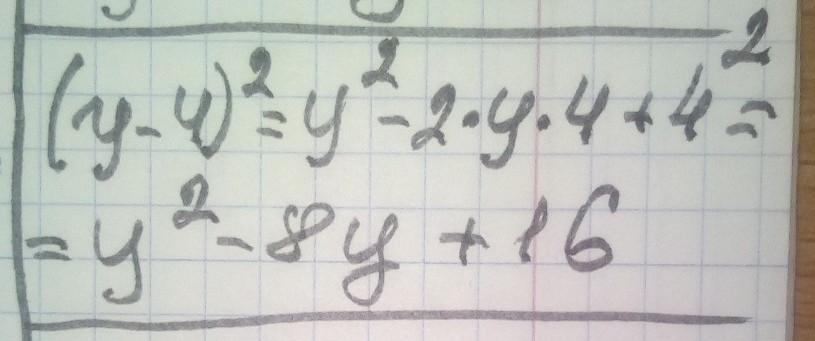 (y-4)²=y²-2·y·4+4²=
=y²-8y+16